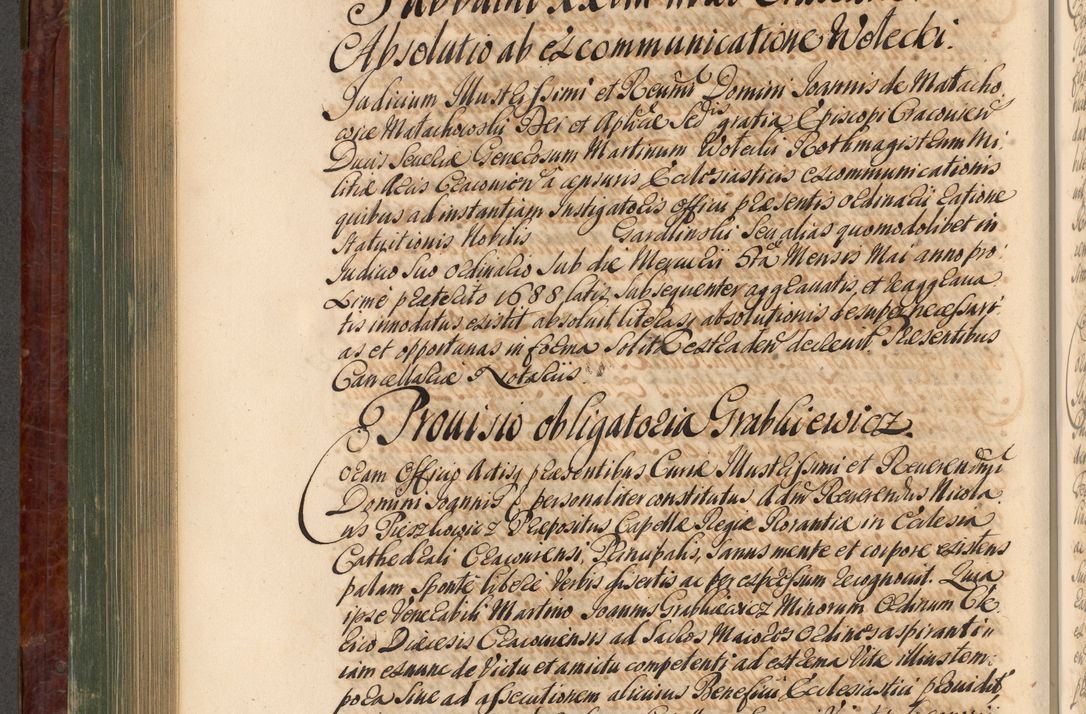 Absolutio ab excommunicatione Wolecki.
Judicium Illustrissimi et Reverendissimi Domini Joannis de Małacho,
wice Małachowski Dei et Aplicae Sedis gratia Episcopi Cracovien
Ducis Severiae Generosum Martinum Wolecki Rothmagistrum Mi
litiae Arcis Cracovien a censuris Ecclesiasticis excommunicationis
quibus ad instantiam Instigatoris officii praesentis ordinarii ratione
statuitionis Nobilis Garalinskii seu alias quomodolibet in
Judicio suo ordinario sub die Mercurii 5ta Mensis Mai anno pro
xime praeterito 1688 latis, subsequenter aggravatis, et reaggrava
tis innodatus existit absolvit literasq absolutionis desuper necessari
as et opportunas in forma solita extraden decrevit. Praesentibus
Cancellariae Notariis.
Provisio obligatoria Grabkiewicz.
Coram Officio Actisq praesentibus Curiae Illustrissimi et Reverendissimi
Domini Joannis &c personaliter constitutus Admodum Reverendus Nicola
us Pieczkowicz Praepositus Capellae Regiae Rorantiae in Ecclesia
Cathedrali Cracoviensi, Principalis, sanus mente et corpore existens
palam sponte libere verbis disertis ac per expressum recognovit. Quia
ipse Venerabili Martino Joannis Grabkiewicz Minorum Ordinum Cle
rico Dioecesis Cracoviensis ad Sacros Maiores ordines aspiranti
iam exnunc de victu et amictu competenti ad extrema vitae illius tem
pora sive ad assecutionem alicuius Beneficii Ecclesiastici providit